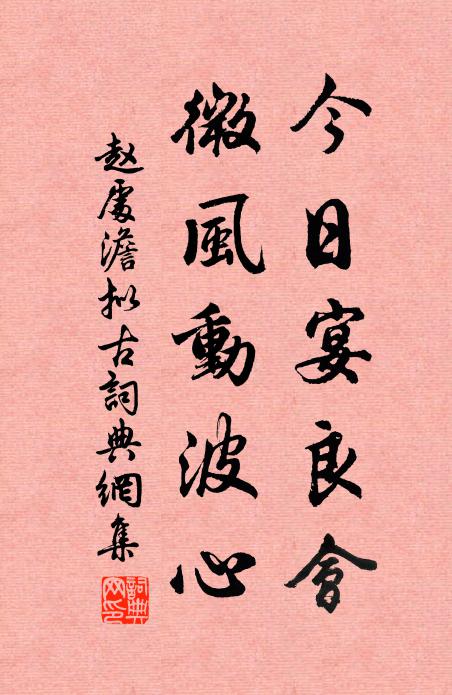 今日宴良會
微風動波心
赵處澹拟古詞典網集
詞典网印